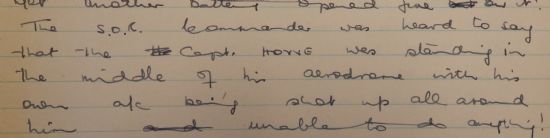 another battery opened fire on it.
The S.O.R. Commander was heard to say
that the Capt. HORNE was standing in
the middle of his aerodrome with his
own a/c being shot up all around
him and unable to do anything!